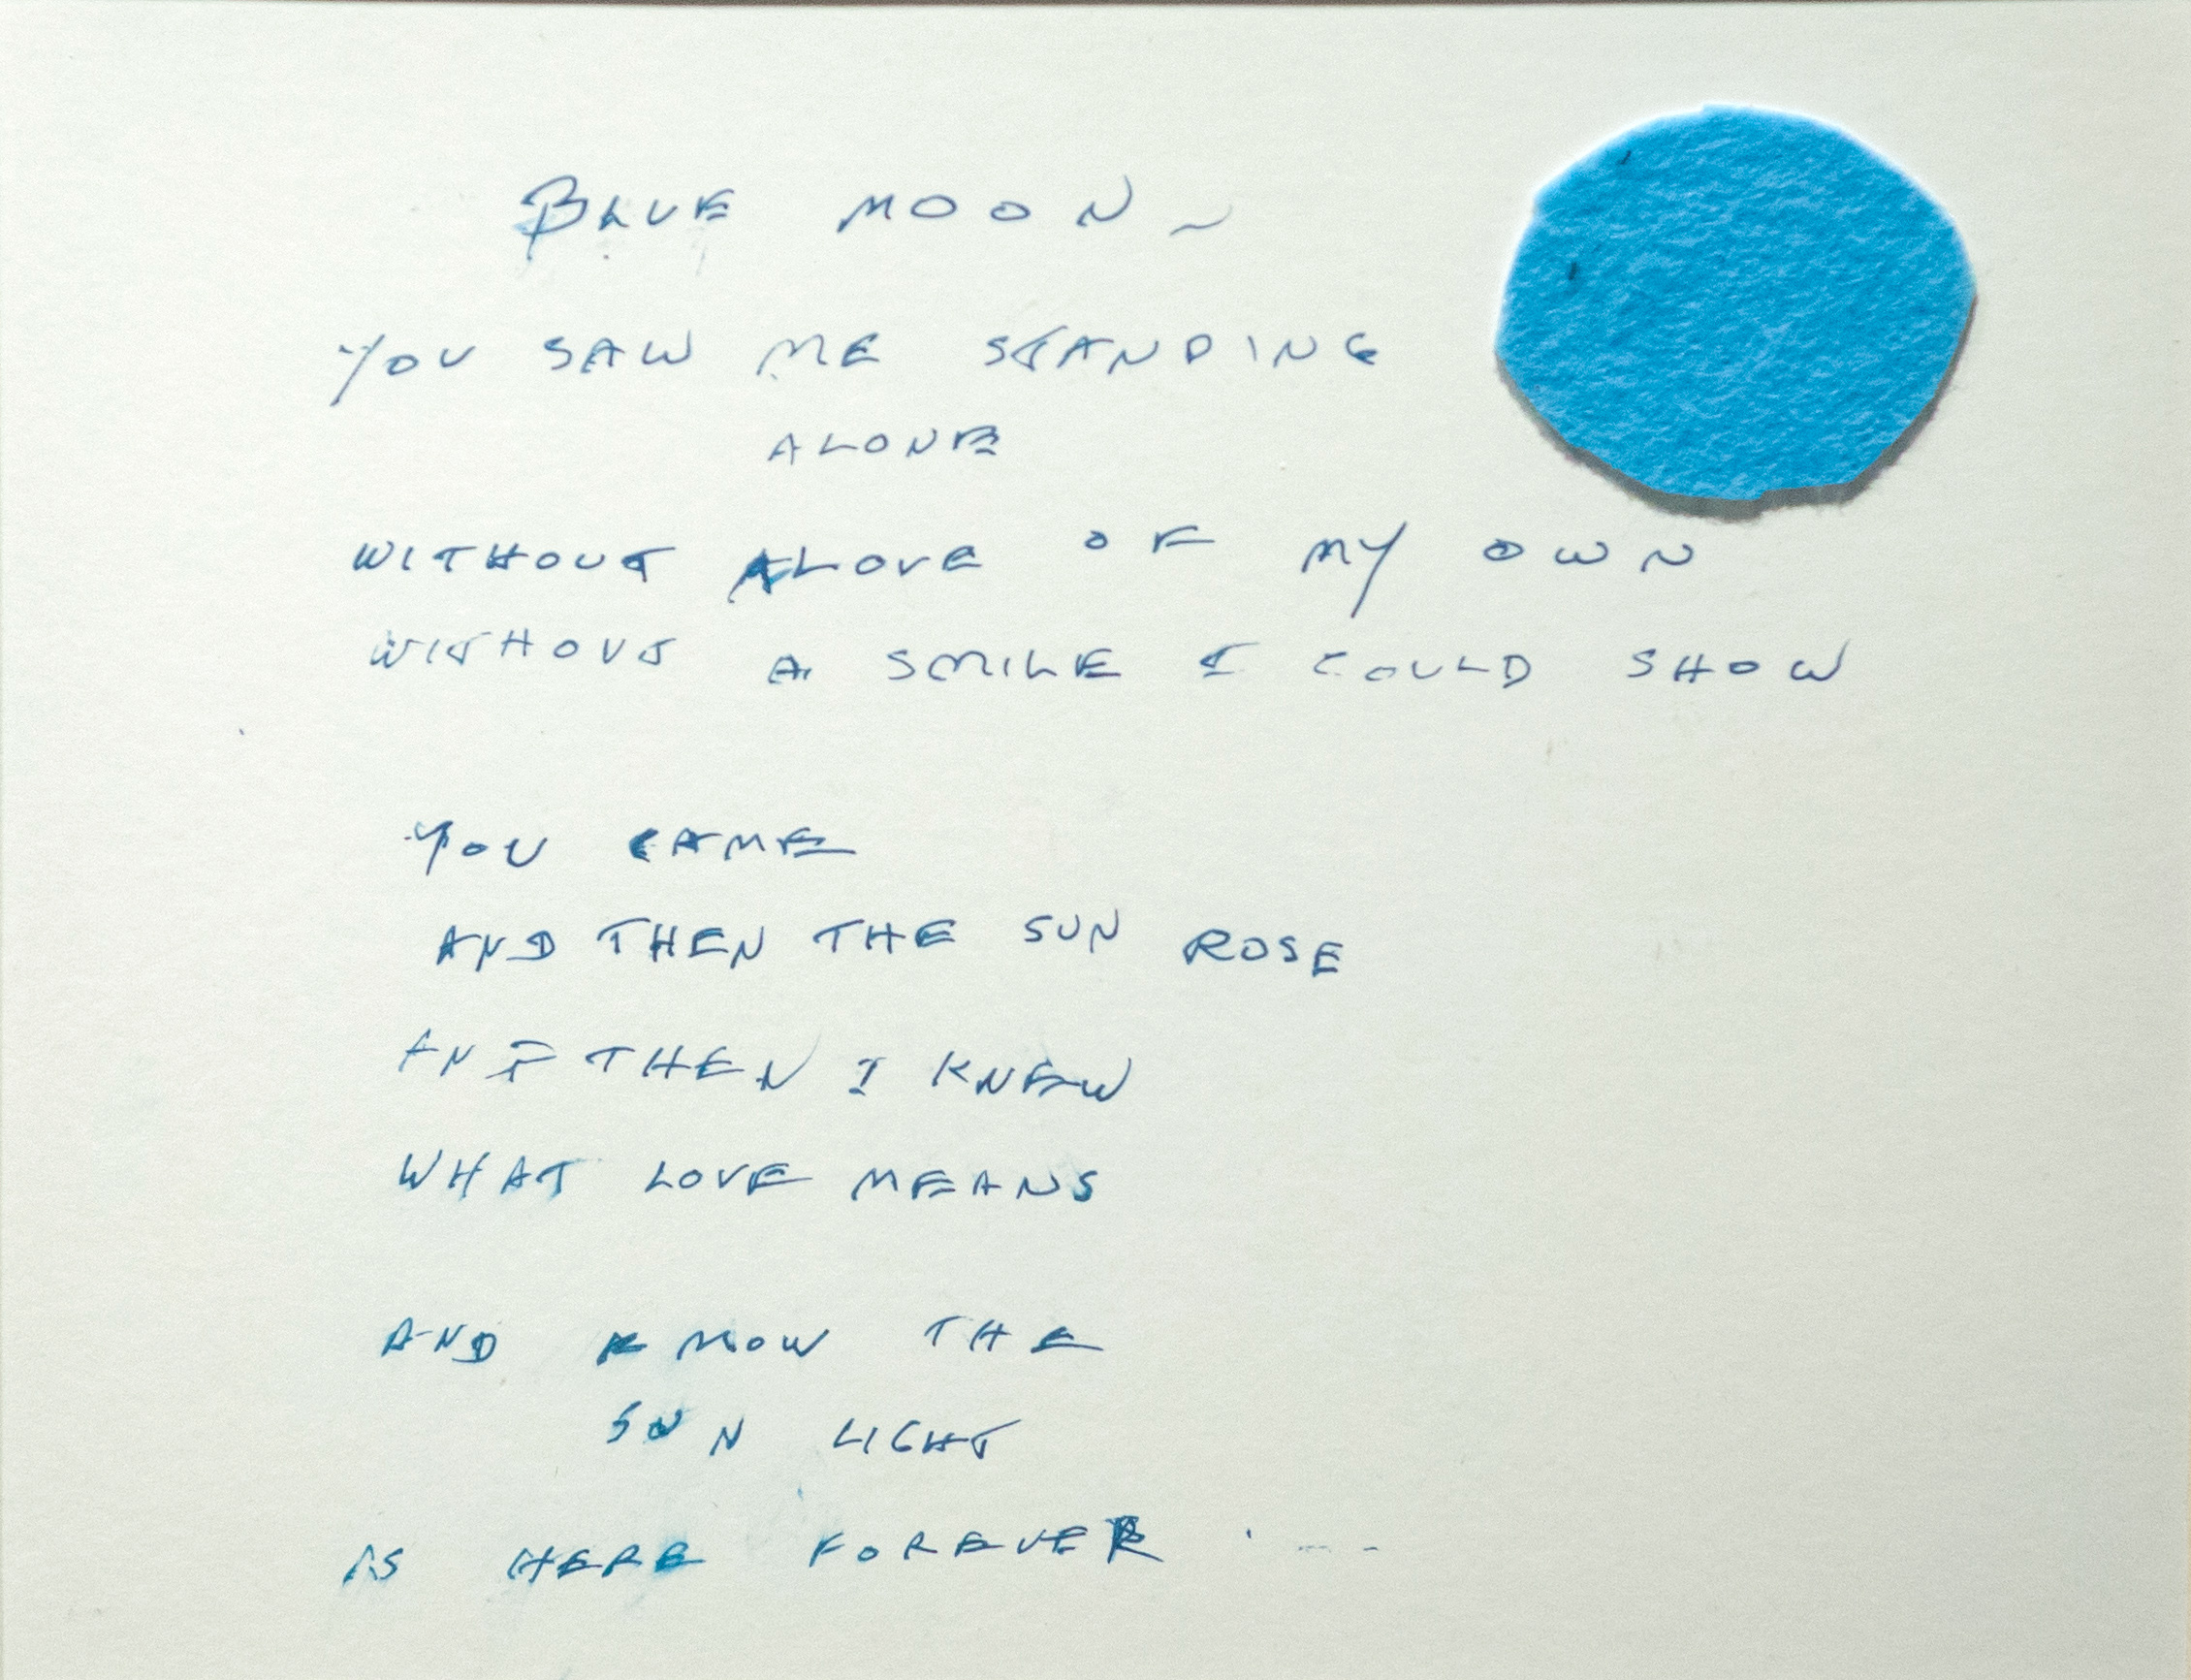 BLUE MOON ~
YOU SAW ME STANDING
ALONE
WITHOUT A LOVE OF MY OWN
WITHOUT A SMILE I COULD SHOW
YOU CAME
AND THEN THE SUN ROSE
AND THEN I KNEW
WHAT LOVE MEANS
AND KNOW THE
SUN LIGHT
IS HERE FOREVER . - -